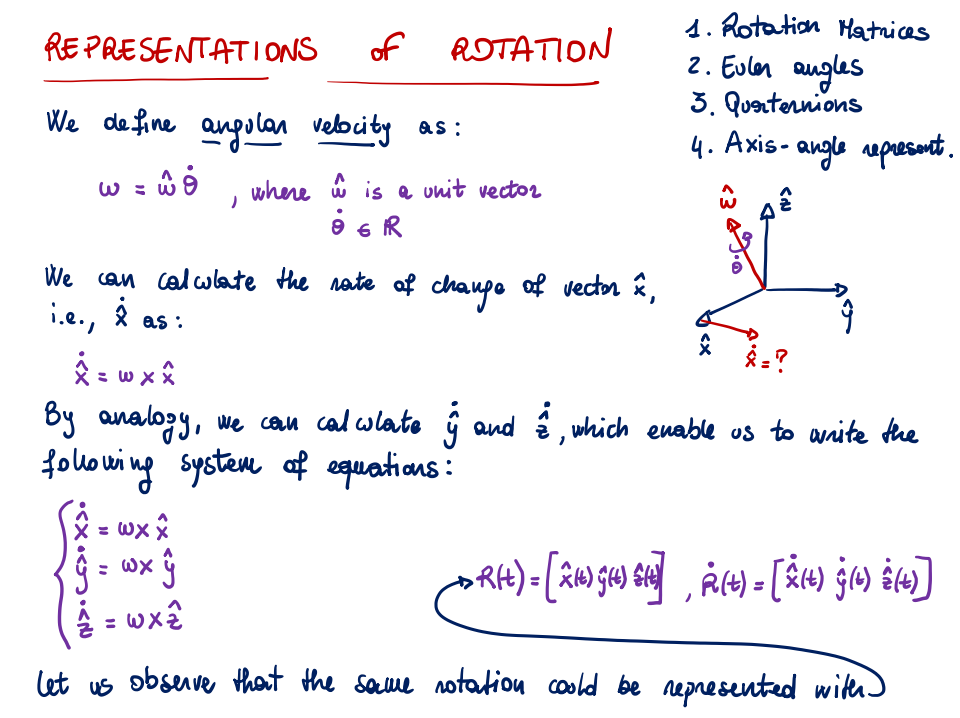 REPRESENTATIONS of ROTATION
1. Rotation Matrices
2. Euler angles
3. Quaternions
4. Axis-angle represent.
We define angular velocity as:
ω = ŵ θ̇ , where ŵ is a unit vector
θ̇ ∈ ℝ
ŵ
ẑ
θ̇
ŷ
x̂
x̂̇ = ?
We can calculate the rate of change of vector x̂,
i.e., x̂̇ as:
x̂̇ = ω × x̂
By analogy, we can calculate ŷ̇ and ẑ̇, which enable us to write the
following system of equations:
x̂̇ = ω × x̂
ŷ̇ = ω × ŷ
ẑ̇ = ω × ẑ
R(t) = [x̂(t) ŷ(t) ẑ(t)] , Ṙ(t) = [x̂̇(t) ŷ̇(t) ẑ̇(t)]
Let us observe that the same rotation could be represented with